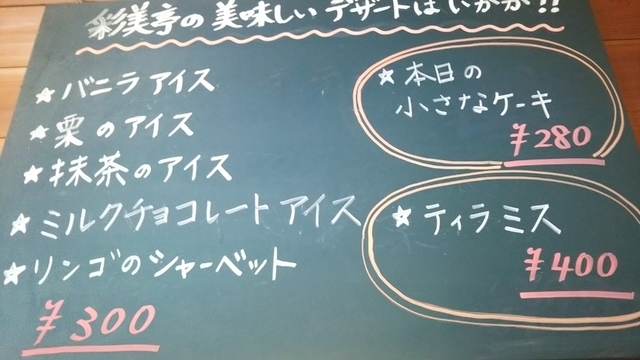 彩美亭の美味しいデザートはいかが!!
★バニラアイス
★栗のアイス
★抹茶のアイス
★ミルクチョコレートアイス
★リンゴのシャーベット
¥300
★本日の
小さなケーキ
¥280
★ティラミス
¥400